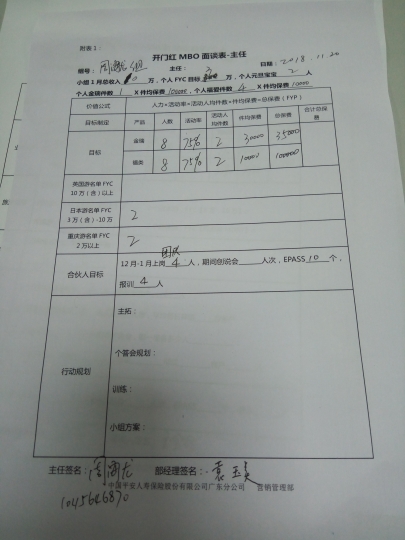 附表1：
开门红 MBO 面谈表-主任
组号： 主任： 日期：2018.11.20
小组1月总收入 万，个人FYC目标 万，个人元旦宝宝 2 人
个人金瑞件数 1 X件均保费 10000，个人福爱件数 4 X件均保费 10000
价值公式 人力×活动率×活动人均件数×件均保费=总保费（FYP）
目标制定 产品 人数 活动率 活动人均件数 件均保费 总保费 合计总保费
目标 金瑞 8 75% 2 30000 35000
福类 8 75% 2 10000 100000
英国游名单 FYC
10万（含）以上
日本游名单 FYC
3万（含）-10万 2
重庆游名单 FYC
2万以上 2
合伙人目标 12月-1月上岗 4 人，期间创说会 人次，EPASS 10 个，
报训 4 人
行动规划
主拓：
个苔会规划：
训练：
小组方案：
主任签名： 部经理签名：
中国平安人寿保险股份有限公司广东分公司 营销管理部
1045646870